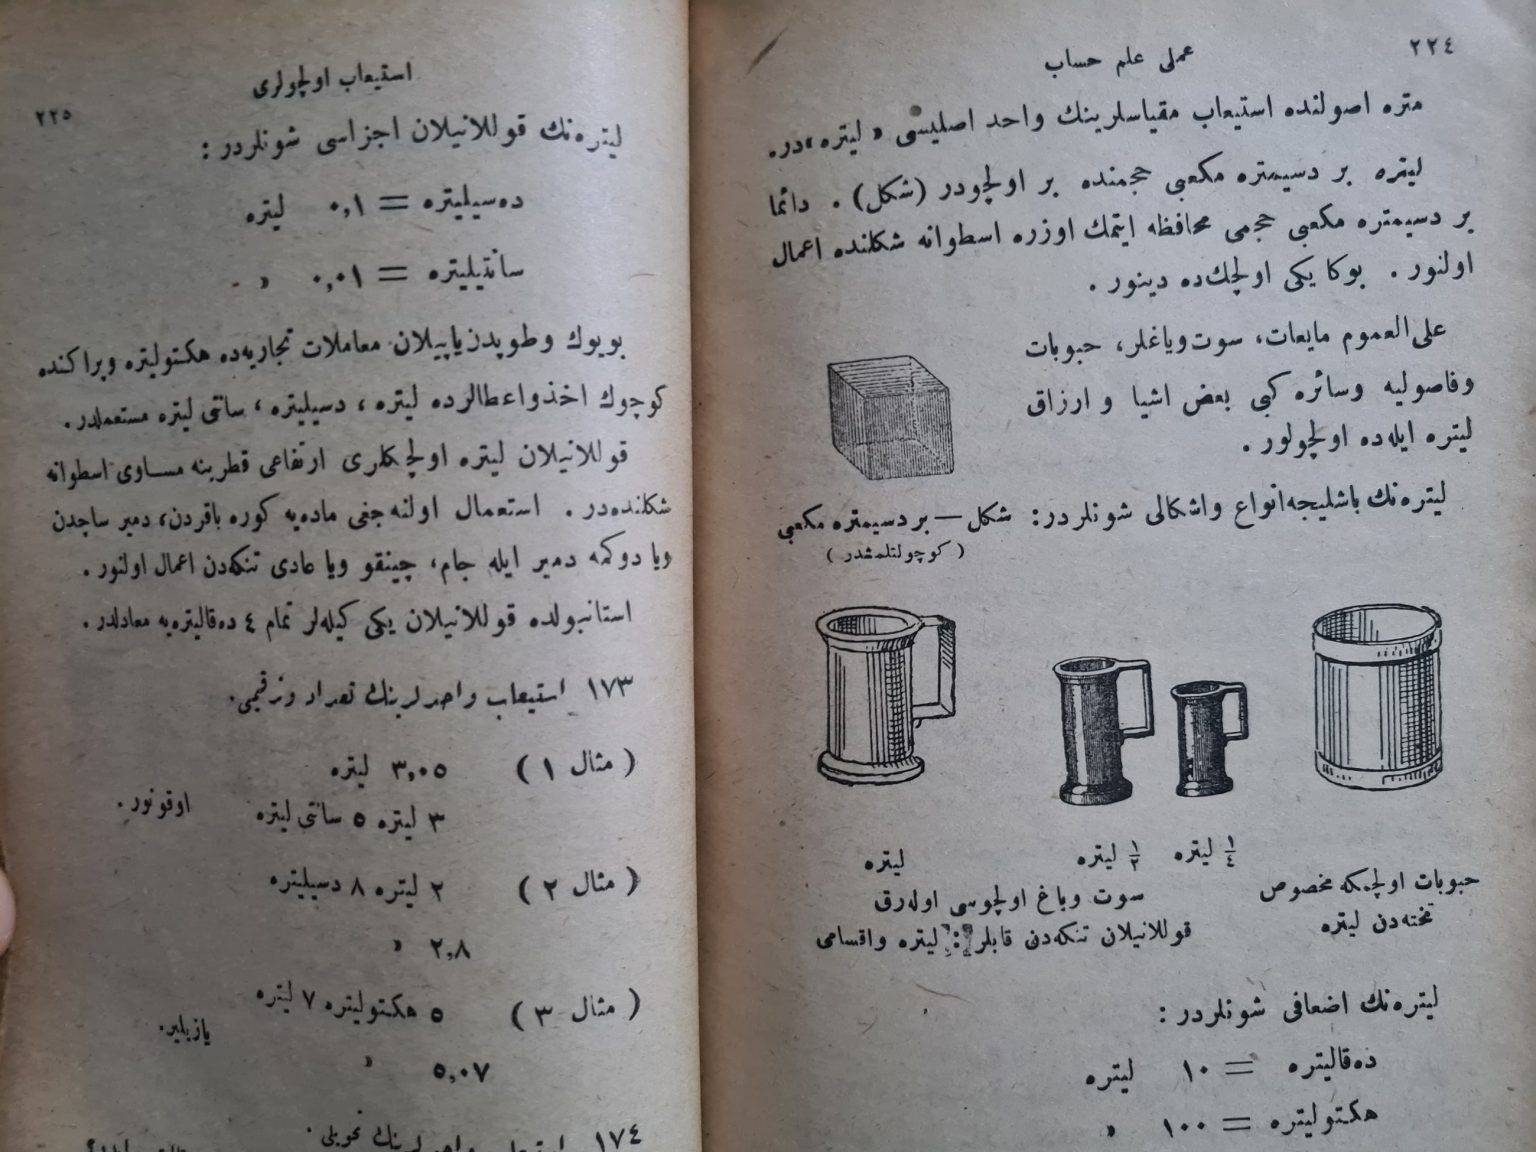 ٢٢٤
عملی علم حساب
متره اصولنده استیعاب مقیاسلرینك واحد اصلیسی « لیتره »در.
لیتره بر دسیمتره مکعبی حجمنده بر اولچودر (شکل) . دائما
بر دسیمتره مکعبی حجمی محافظه ایتمك اوزره اسطوانه شکلنده اعمال
اولنور . بوکا یکی اولچك ده دینور .
علی العموم مایعات، سوت ویاغلر، حبوبات
وفاصولیه وسائره کبی بعض اشیا و ارزاق
لیتره ایله ده اولچولور .
لیتره نك باشلیجه انواع واشکالی شونلردر:
شکل — بر دسیمتره مکعبی
( کوچولتلمشدر )
١/٤ لیتره
١/٢ لیتره
لیتره
حبوبات اولچمکه مخصوص
تخته دن لیتره
سوت ویاغ اولچوسی اوله رق
قوللانیلان تنکه دن قابلر : لیتره واقسامی
لیتره نك اضعافی شونلردر :
ده قالیتره = ١٠ لیتره
هکتولیتره = ١٠٠ »
استیعاب اولچولری
٢٢٥
لیتره نك قوللانیلان اجزاسی شونلردر :
ده سیلیتره = ٠,١ لیتره
سانتیلیتره = ٠,٠١ »
بویوك وطوپدن یاپیلان معاملات تجاریه ده هکتولیتره وپراکنده
کوچوك اخذ واعطالرده لیتره ، دسیلیتره ، سانتی لیتره مستعملدر .
قوللانیلان لیتره اولچکلری ارتفاعی قطرینه مساوی اسطوانه
شکلنده در . استعمال اولنه جغی ماده یه کوره باقردن، دمیر ساجدن
ویا دوکمه دمیر ایله جام، چینقو ویا عادی تنکه دن اعمال اولنور .
استانبولده قوللانیلان یکی کیله لر تمام ٤ ده قالیتره یه معادلدر .
١٧٣ استیعاب واحدلرینك تعداد وترقیمی.
( مثال ١ ) ٣,٠٥ لیتره
٣ لیتره ٥ سانتی لیتره اوقونور .
( مثال ٢ ) ٢ لیتره ٨ دسیلیتره
٢,٨ »
( مثال ٣ ) ٥ هکتولیتره ٧ لیتره
یازیلیر.
٥,٠٧ »
١٧٤ استیعاب واحدلرینك تحویلی .